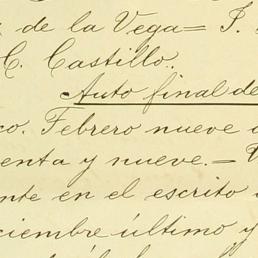 de la Vega= J.
C. Castillo.
Auto final de
co. Febrero nueve
enta y nueve.=
nte en el escrito
ciembre último y